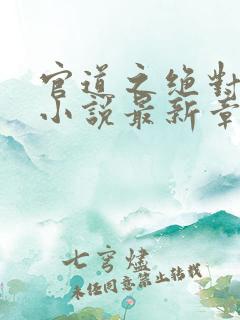 官道之绝對
小說最新章
七穹燼
未经同意禁止转载